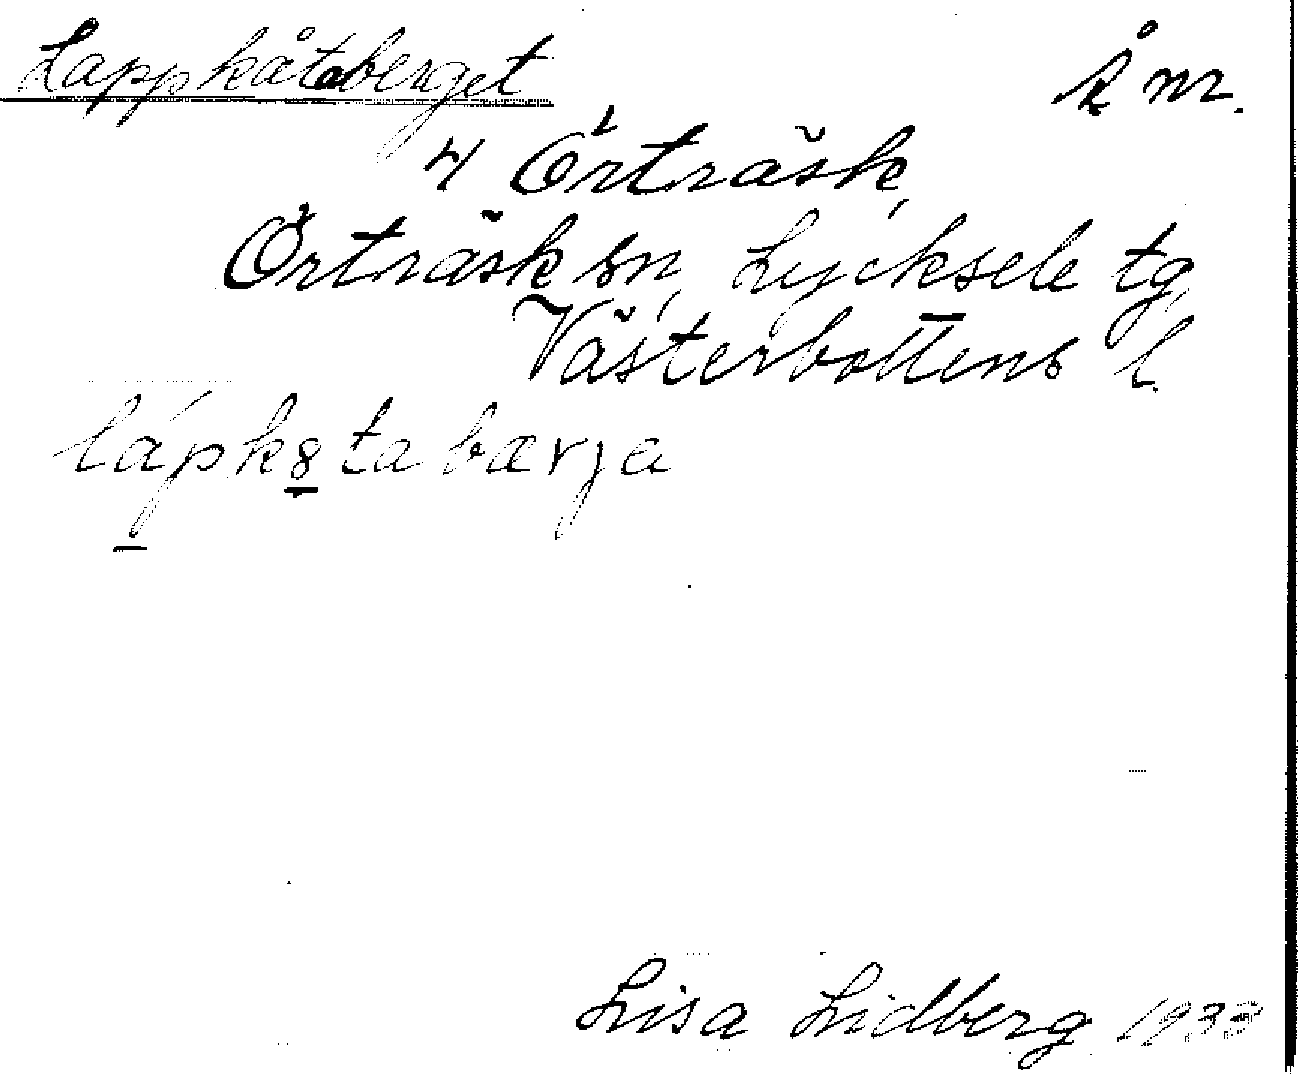 Lappkåtaberget
Å nr.
4 Örträsk,
Örträsk sn, Lycksele tg,
Västerbottens l.
lápk8ta bærja
Lisa Lidberg 1933